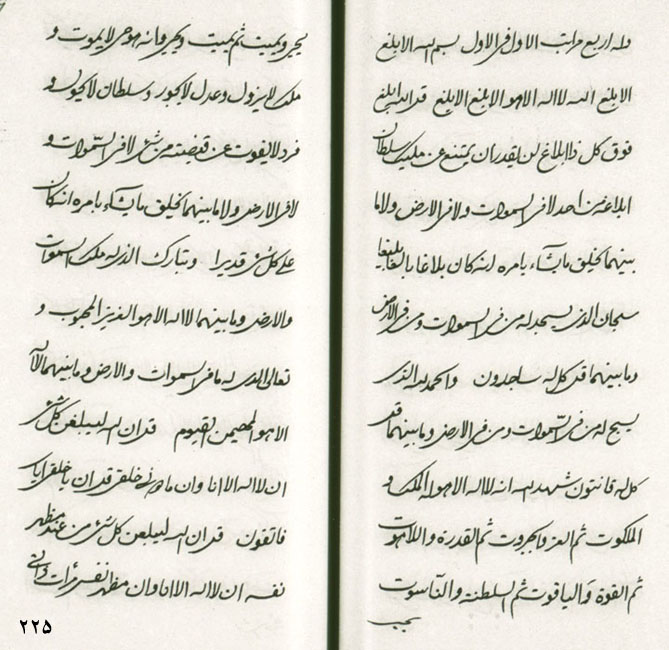 وله اربع مراتب الاول فی الاول بسم الله الابلغ
الابلغ الله لا اله الا هو الابلغ الابلغ قل الله ابلغ
فوق کل ذا ابلاغ لن یقدر ان یمتنع عن ملیک سلطان
ابلاغه من احد لا فی السموات ولا فی الارض ولا ما
بینهما یخلق ما یشاء بامره انه کان بلاغا بالغا بلیغا
سبحان الذی یسجد له من فی السموات ومن فی الارض
وما بینهما قل کل له ساجدون والحمد لله الذی
یسبح له من فی السموات ومن فی الارض وما بینهما قل
کل له قانتون شهد الله انه لا اله الا هو له الملک و
الملکوت ثم العز والجبروت ثم القدرة واللاهوت
ثم القوة والیاقوت ثم السلطنة والناسوت
یحیی
یحیی ویمیت ثم یمیت ویحیی وانه هو حی لا یموت و
ملک لا یزول وعدل لا یجور وسلطان لا یحول و
فرد لا یفوت عن قبضته من شئ لا فی السموات و
لا فی الارض ولا ما بینهما یخلق ما یشاء بامره انه کان
علی کل شئ قدیرا وتبارک الذی له ملک السموات
والارض وما بینهما لا اله الا هو العزیز المحبوب و
تعالی الذی له ما فی السموات والارض وما بینهما لا اله
الا هو المهیمن القیوم قل ان الله لیبلغن کل شئ
ان لا اله الا انا وان ما دونی خلقی قل ان یا خلقی ایای
فاتقون قل ان الله لیبلغن کل شئ من عند مظهر
نفسه ان لا اله الا انا وان مظهر نفسی
۲۲۵